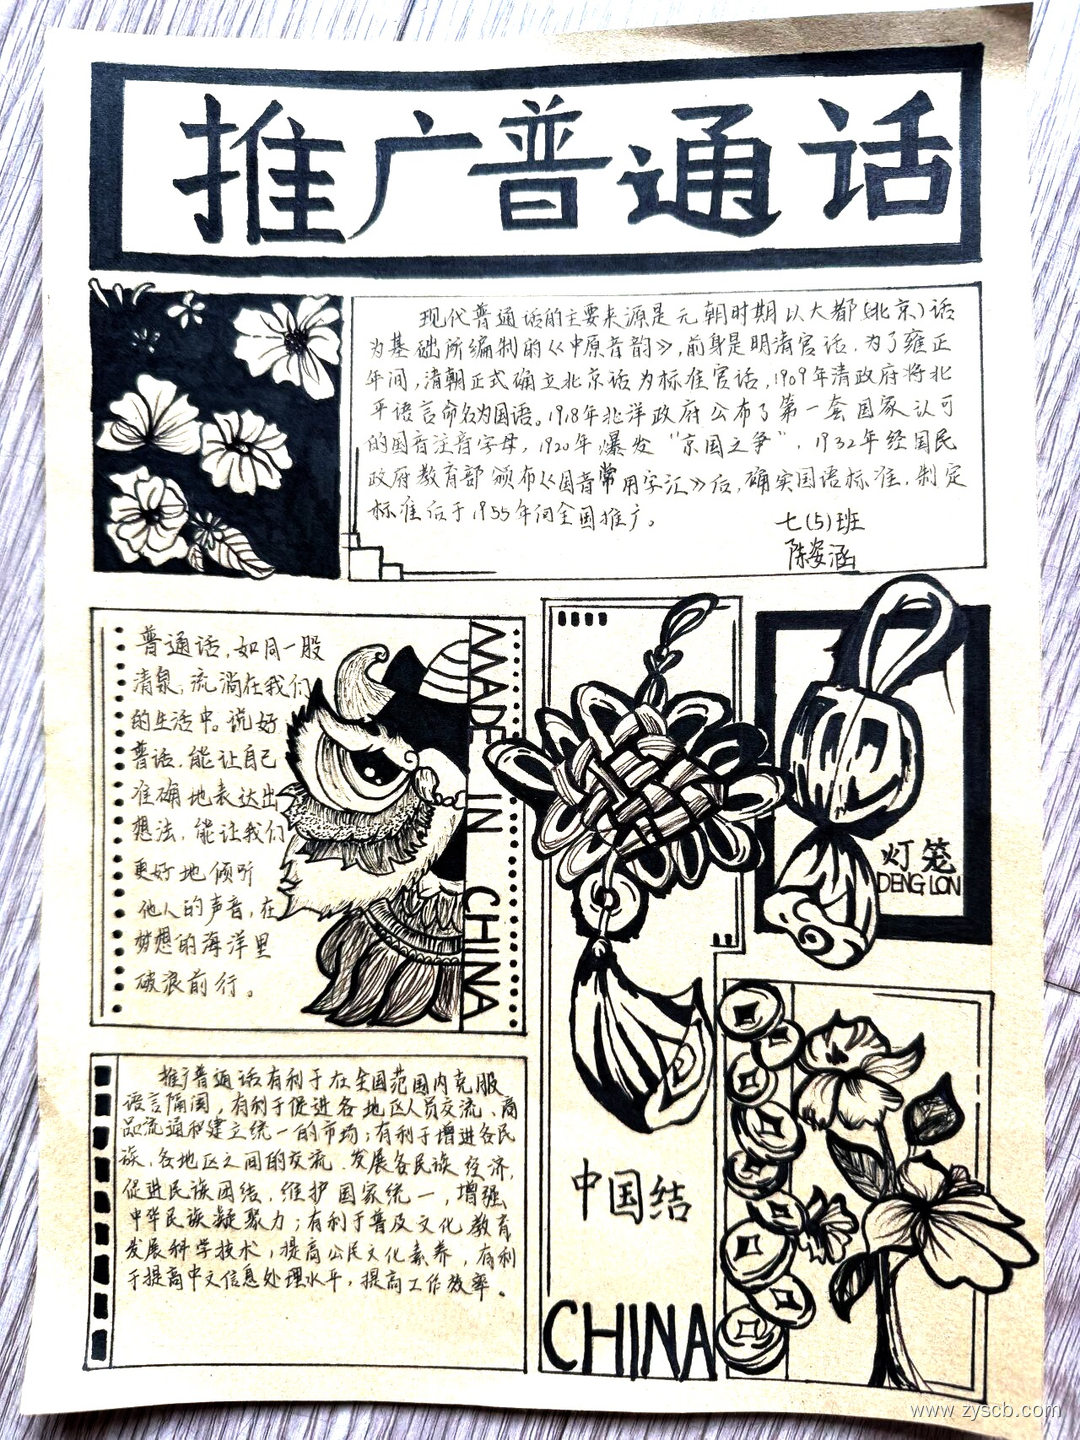 推广普通话
现代普通话的主要来源是元朝时期以大都(北京)话
为基础所编制的《中原音韵》,前身是明清官话,为了雍正
年间,清朝正式确立北京话为标准官话,1909年清政府将北
平语言命名为国语。1918年北洋政府公布了第一套国家认可
的国音注音字母,1920年爆发“京国之争”,1932年经国民
政府教育部颁布《国音常用字汇》后,确实国语标准,制定
标准后于1955年向全国推广。
七(5)班
陈姿涵
普通话,如同一股
清泉,流淌在我们
的生活中。说好
普话,能让自己
准确地表达出
想法,能让我们
更好地倾听
他人的声音,在
梦想的海洋里
破浪前行。
MADE IN CHINA
灯笼
DENG LON
中国结
CHINA
推广普通话有利于在全国范围内克服
语言隔阂,有利于促进各地区人员交流、商
品流通和建立统一的市场;有利于增进各民
族、各地区之间的交流、发展各民族经济,
促进民族团结,维护国家统一,增强
中华民族凝聚力;有利于普及文化教育
发展科学技术,提高公民文化素养,有利
于提高中文信息处理水平,提高工作效率。
www.zyscb.com